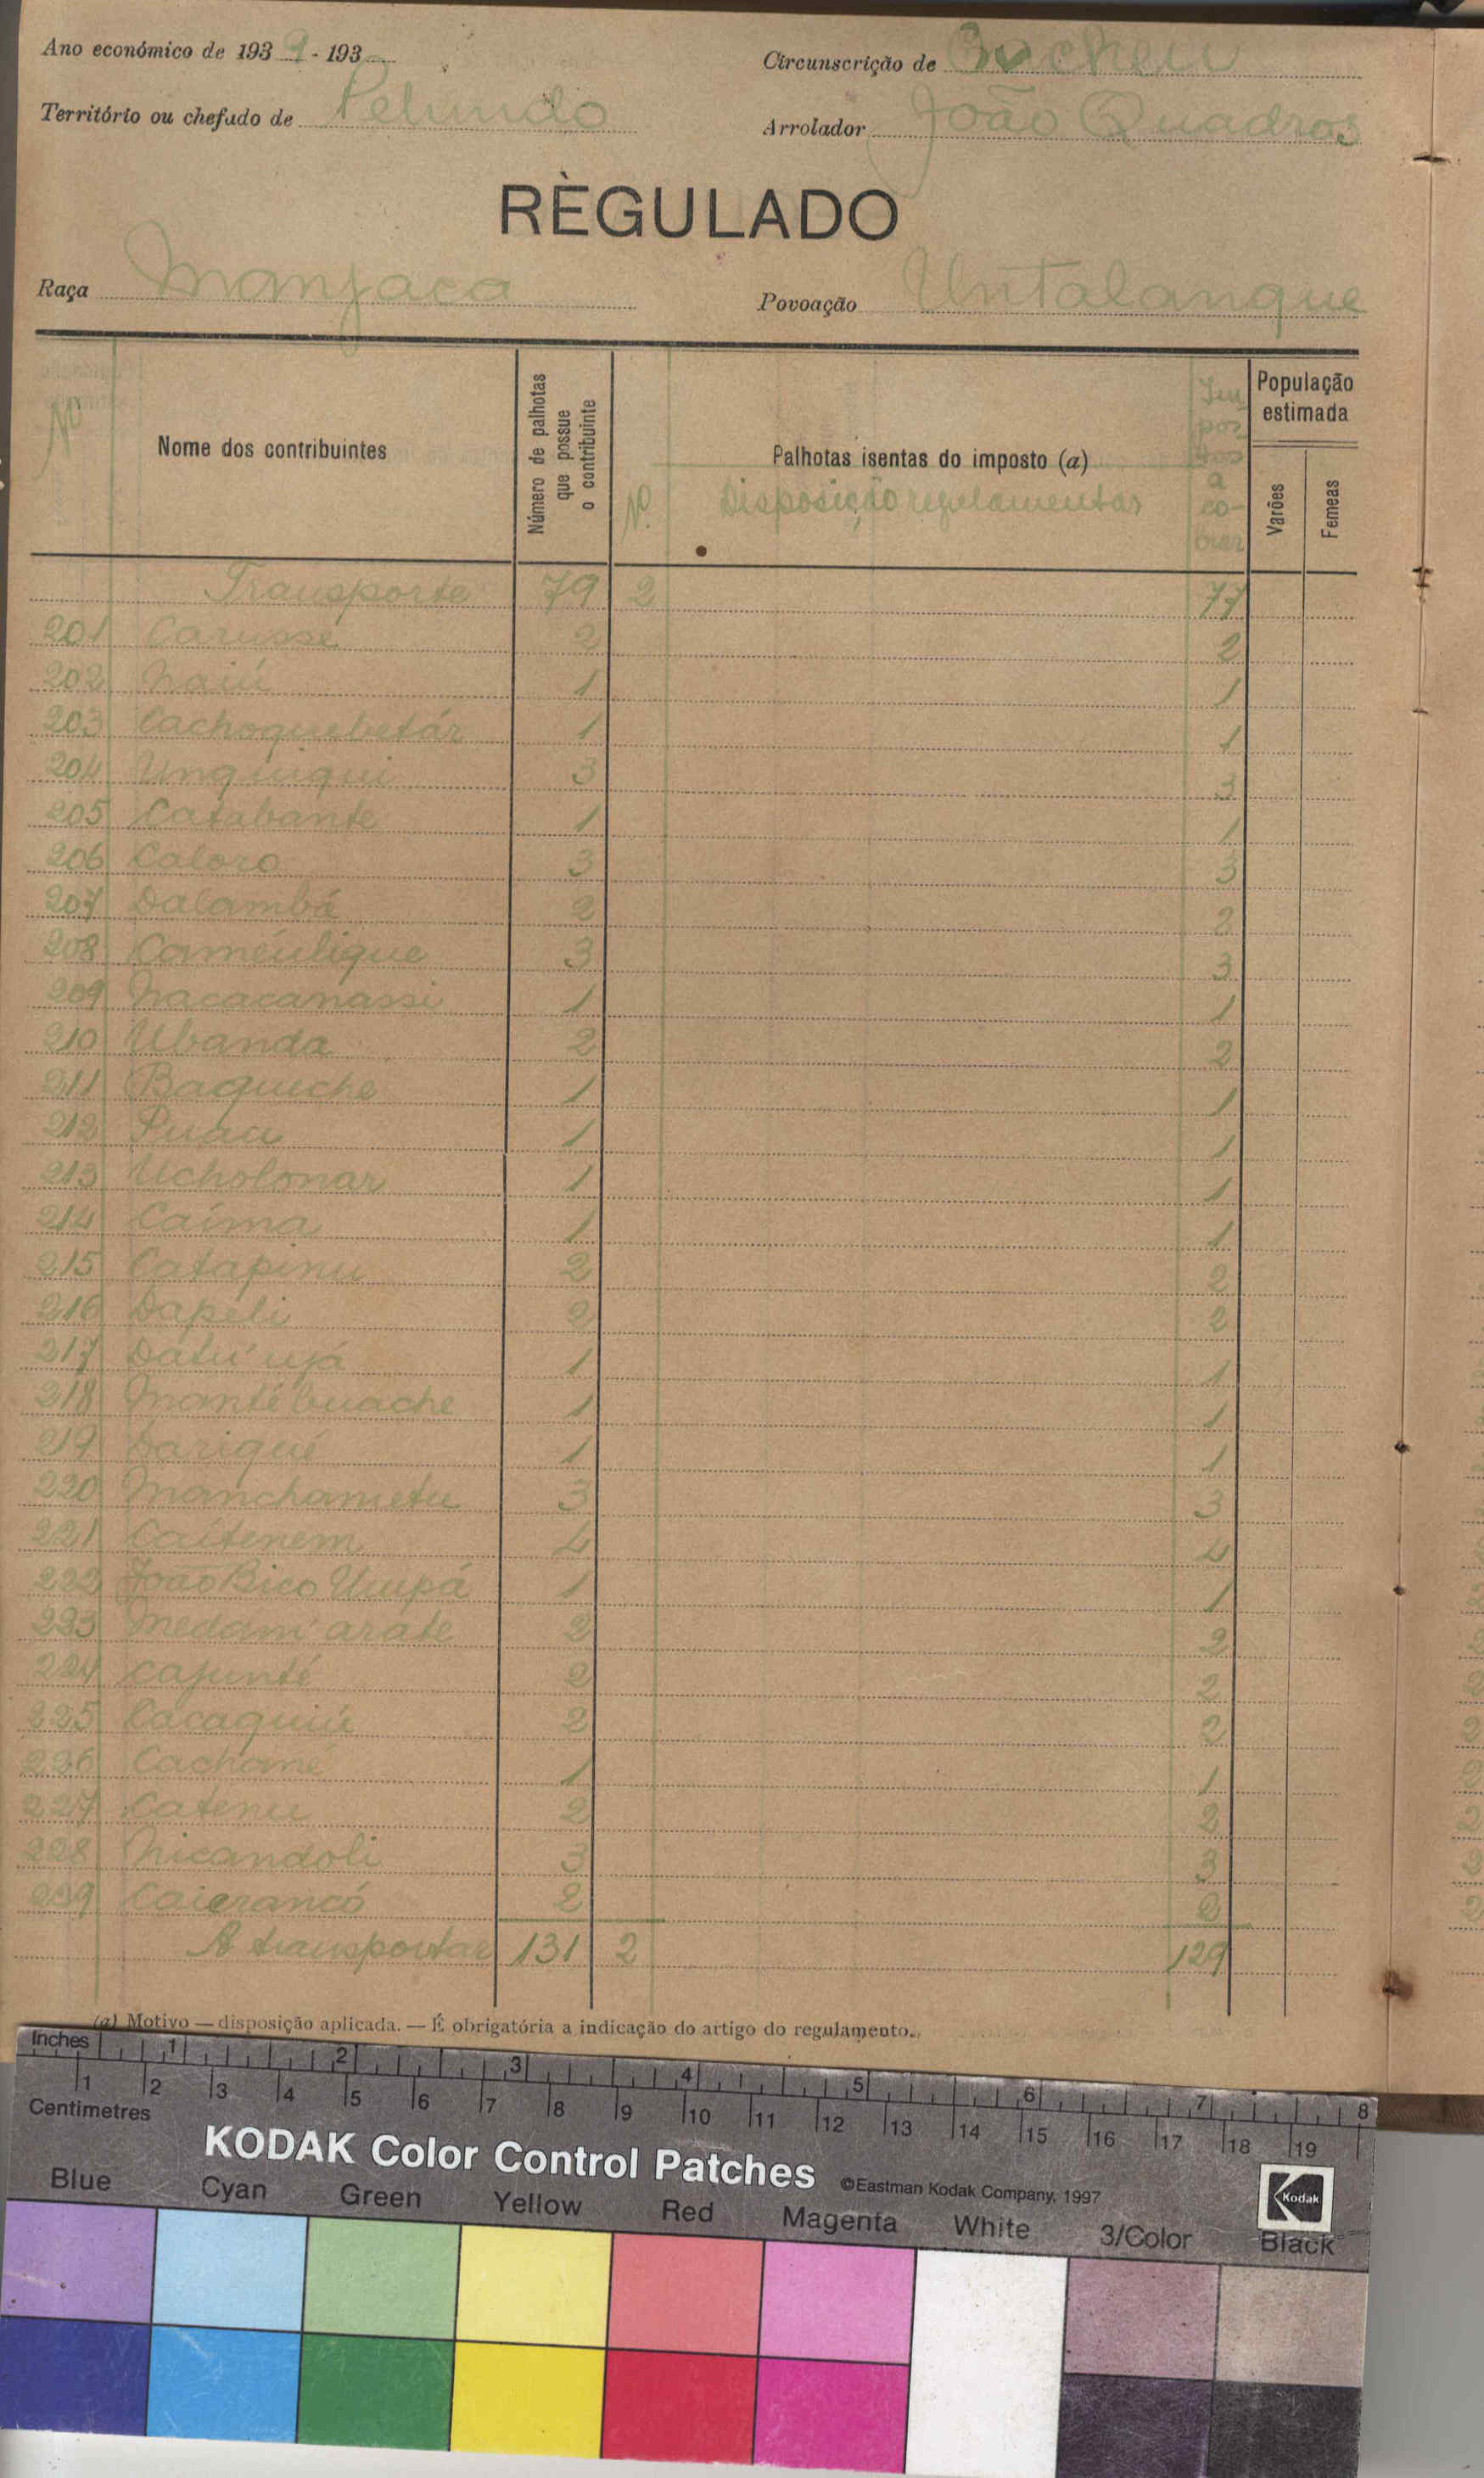 Ano económico de 1939-193
Circunscrição de Bacheu
Território ou chefado de Pelundo
Arrolador João Quadros
RÈGULADO
Raça Manjaca
Povoação Untalanque
Nº
Nome dos contribuintes
Número de palhotas que possue o contribuinte
Nº
Palhotas isentas do imposto (a)
Disposição regulamentar
Im
pos
tos
a
co-
brar
População estimada
Varões
Femeas
Transporte 79 2 77
201 Carussé 2 2
202 Naiú 1 1
203 Cachoquebetár 1 1
204 Unguiqui 3 3
205 Catabante 1 1
206 Caloro 3 3
207 Dalambá 2 2
208 Caméulique 3 3
209 Nacacanassi 1 1
210 Ubanda 2 2
211 Baqueche 1 1
212 Puau 1 1
213 Ucholonar 1 1
214 Caíma 1 1
215 Catapinu 2 2
216 Dapeli 2 2
217 Datú ujá 1 1
218 Mantébuache 1 1
219 Dariqué 1 1
220 Manchametu 3 3
221 Caítenem 4 4
222 João Bico Umpá 1 1
223 Medamí arate 2 2
224 Cajunté 2 2
225 Cacaquiú 2 2
226 Cachomé 1 1
227 Catenu 2 2
228 Nicandoli 3 3
229 Caierancó 2 2
A transportar 131 2 129
(a) Motivo — disposição aplicada. — É obrigatória a indicação do artigo do regulamento.
Inches 1 2 3 4 5 6 7 8
Centimetres 1 2 3 4 5 6 7 8 9 10 11 12 13 14 15 16 17 18 19
KODAK Color Control Patches ©Eastman Kodak Company, 1997
Kodak
Blue Cyan Green Yellow Red Magenta White 3/Color Black